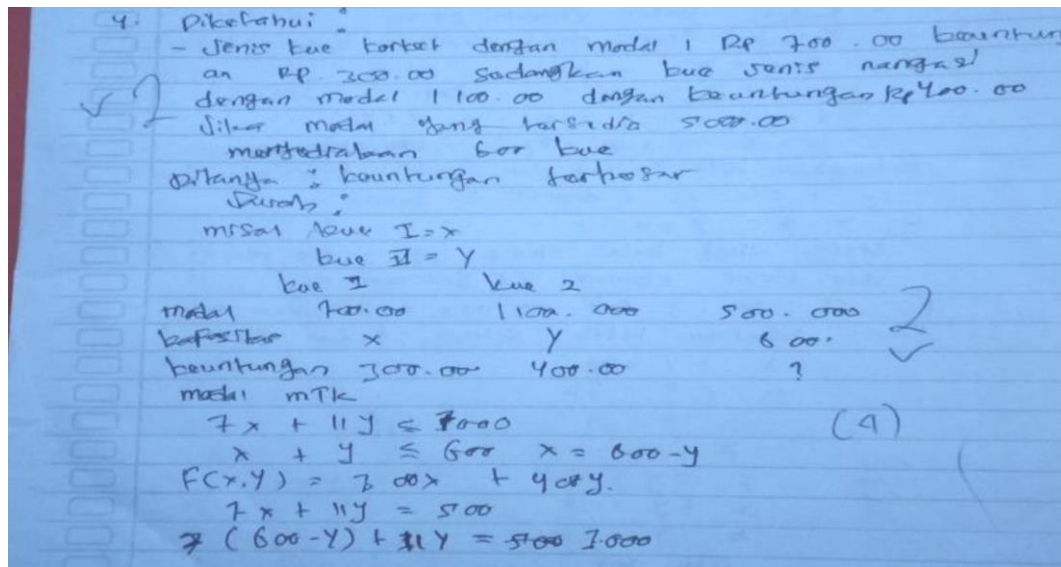 4. Diketahui :
- Jenis kue dengan modal 1 Rp 700.00 keuntun
an Rp. 300.00 Sedangkan kue Jenis
dengan modal 1100.00 dengan keuntungan Rp 400.00
Jika modal yang tersedia
600 kue
Ditanya : keuntungan terbesar
Jawab :
misal kue I = x
kue II = Y
kue I kue 2
modal 700.00 1100.000 500.000 2
x Y 600.
keuntungan 300.00 400.00 ?
modal mTk
7x + 11y ≤ 7000 (4)
x + y ≤ 600 x = 600-y
F(x.Y) = 300x + 400y.
7x + 11y = 500
7 (600-Y) + 11Y =